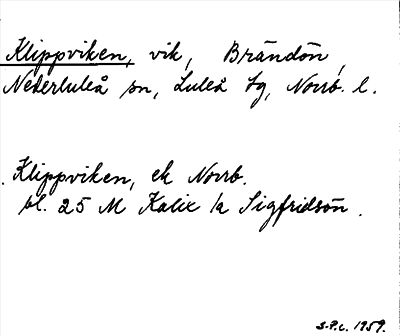 Klippviken, vik, Brändön,
Nederluleå sn, Luleå tg, Norrb. l.
Klippviken, ek Norrb.
bl. 25 M Kalix /a Sigfridsön.
S.P.L. 1959.